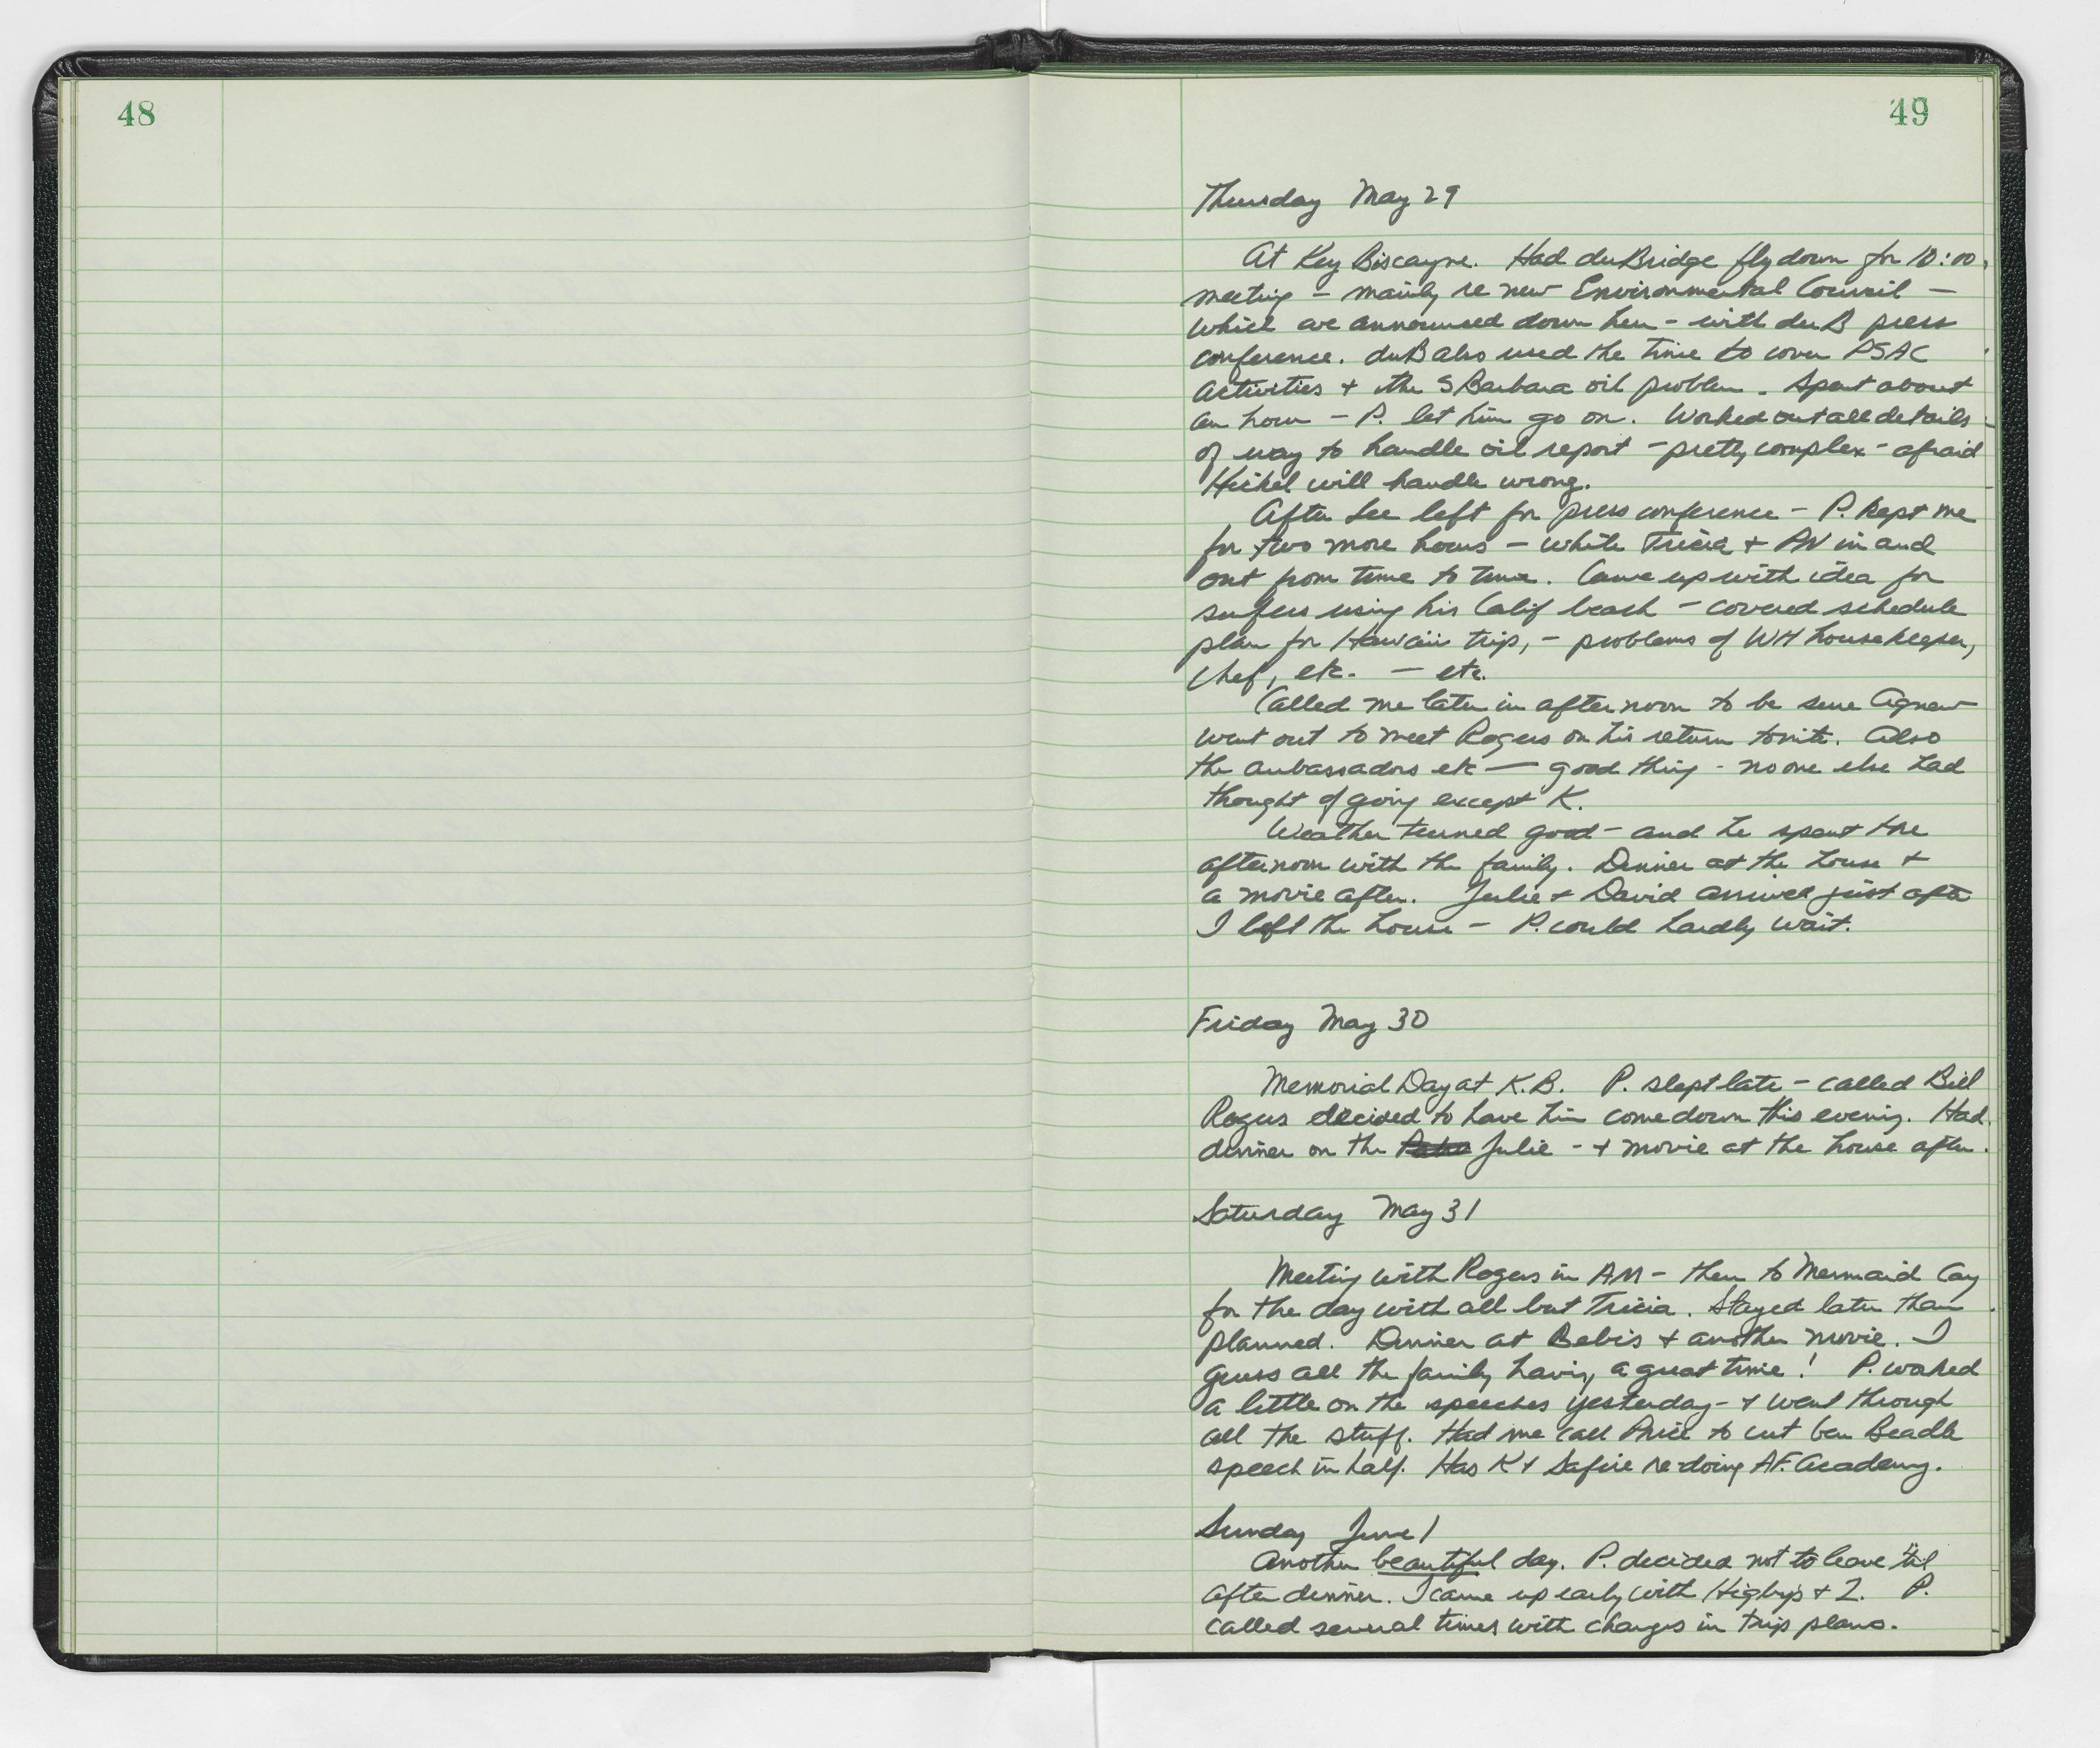 48
49
Thursday May 29
At Key Biscayne. Had duBridge fly down for 10:00
meeting - mainly re new Environmental Council -
which we announced down here - with duB press
conference. duB also used the time to cover PSAC
activities + the S Barbara oil problem. Spent about
an hour - P. let him go on. Worked out all details
of way to handle oil report - pretty complex - afraid
Hickel will handle wrong.
After Lee left for press conference - P. kept me
for two more hours - while Tricia + PN in and
out from time to time. Came up with idea for
surfers using his Calif beach - covered schedule
plan for Hawaii trip, - problems of WH housekeeper,
chef, etc. - etc.
Called me later in afternoon to be sure Agnew
went out to meet Rogers on his return tonite. Also
the ambassadors etc - good thing - no one else had
thought of going except K.
Weather turned good - and he spent the
afternoon with the family. Dinner at the house +
a movie after. Julie + David arrived just after
I left the house - P. could hardly wait.
Friday May 30
Memorial Day at K.B. P. slept late - called Bill
Rogers decided to have him come down this evening. Had
dinner on the Julie - + movie at the house after.
Saturday May 31
Meeting with Rogers in AM - then to Mermaid Cay
for the day with all but Tricia. Stayed later than
planned. Dinner at Bebe's + another movie. I
guess all the family having a great time! P. worked
a little on the speeches yesterday - + went through
all the stuff. Had me call Price to cut Gen Beadle
speech in half. Has K + Safire re-doing AF. Academy.
Sunday June 1
Another beautiful day. P. decided not to leave 'til
after dinner. I came up early with Higby's + Z. P.
called several times with changes in trip plans.